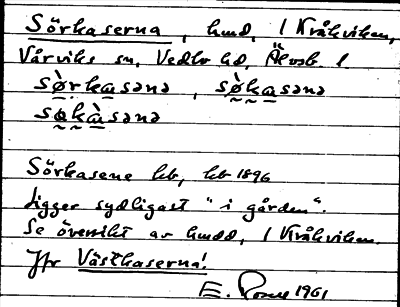 Sörkaserna, hmd, 1 Kråkviken,
Vårviks sn, Vedbo hd, Älvsb. l
sö̀rkasənə, sø̀kasənə
søkàsənə
Sörkasene lb, lb 1896
Ligger sydligast "i gården".
Se översikt av hmdd, 1 Kråkviken.
Jfr Västkaserna!
E. 1961